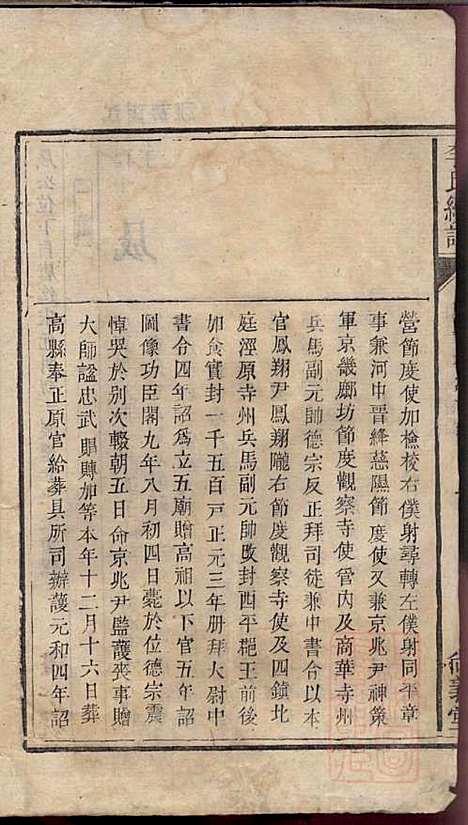 李氏總譜
營節度使加檢校右僕射尋轉左僕射同平章
事兼河中晋絳慈隰節度使又兼京兆尹神策
軍京畿鄜坊節度觀察寺使管內及商華寺州
兵馬副元帥德宗反正拜司徒兼中書合以本
官鳳翔尹鳳翔隴右節度觀察寺使及四鎮北
庭涇原寺州兵馬副元帥改封西平郡王前後
加食實封一千五百戸正元三年册拜大尉中
書合四年詔爲立五廟贈高祖以下官五年詔
圖像功臣閣九年八月初四日薨於位德宗震
悼哭於別次輟朝五日命京兆尹監護喪事贈
大師諡忠武賵賻加等本年十二月十六日葬
高縣奉正原官給葬具所司辦護元和四年詔